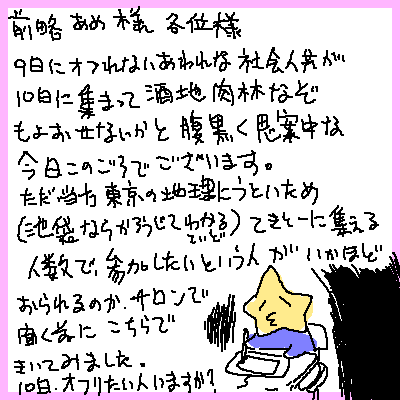 前略 あめ様、各位様
9日にオフれないあわれな社会人共が
10日に集まって酒池肉林なぞ
もよおせないかと腹黒く思案中な
今日このごろでございます。
ただ当方東京の地理にうといため
(池袋ならかろうじてわかる)てきとーに集える
人数で、参加したいという人がいかほど
おられるのか、サロンで
聞く前にこちらで
きいてみました。
10日、オフりたい人いますか?